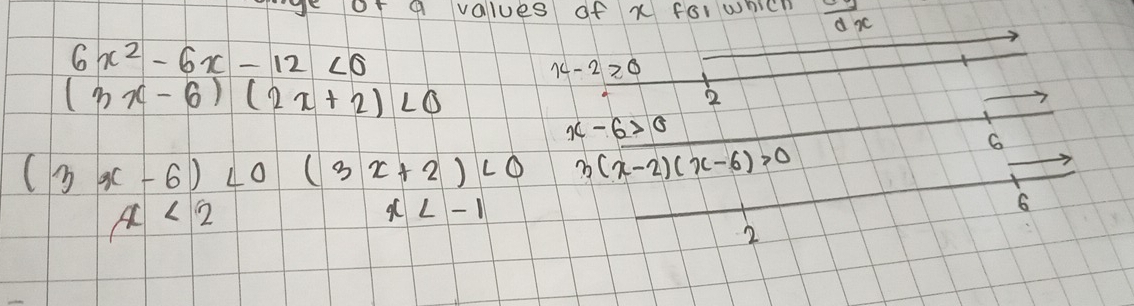 of a values of x for which
dx
6x² - 6x - 12 <0
(3x - 6) (2x + 2) <0
(3x - 6) <0 (3x + 2) <0
x < 2 x < -1
x - 2 ≥ 0
2
x - 6 > 0
6
3(x-2)(x-6) >0
2 6